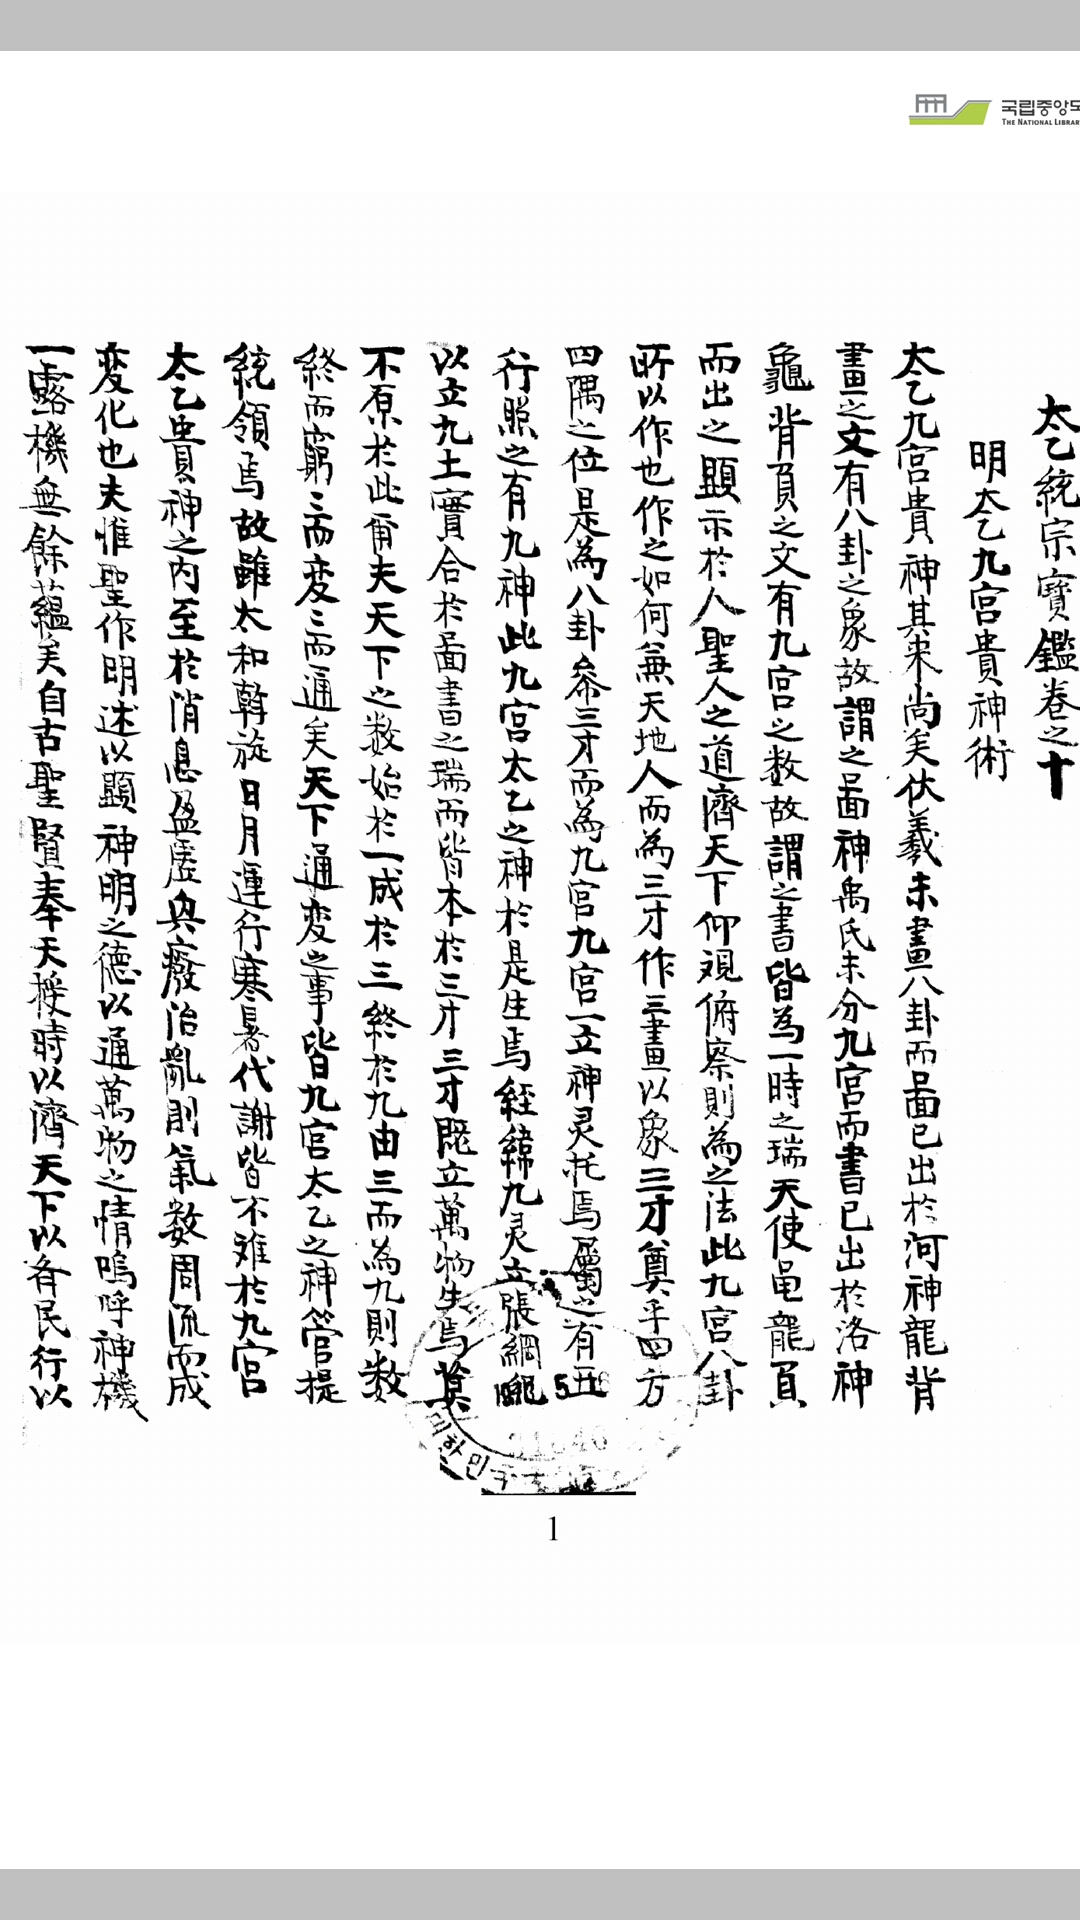 국립중앙도
THE NATIONAL LIBRAR
太乙統宗寶鑑卷之十
明太乙九宮貴神術
太乙九宮貴神其来尚矣伏羲未畫八卦而啚已出於河神龍背
畫之文有八卦之象故謂之啚神禹氏未分九宮而書已出於洛神
龜背負之文有九宮之数故謂之書皆為一時之瑞天使黽龍負
而出之顕示於人聖人之道濟天下仰观俯察則為之法此九宮八卦
所以作也作之如何兼天地人而為三才作三畫以象三才奠乎四方
四隅之位是為八卦叅三才而為九宮九宮一立神灵托焉屬之有五
行照之有九神此九宮太乙之神於是生焉経緯九灵立張綱
以立九土實合於啚書之瑞而皆本於三才三才既立萬物生焉莫
不原於此甭夫天下之数始於一成於三終於九由三而為九則数
終而窮〻而変〻而通矣天下通変之事皆九宮太乙之神管提
統領焉故雖太和斡旋日月運行寒暑代謝皆不难於九宮
太乙貴神之内至於消息盈虗與癈治亂則氣数周流而成
変化也夫惟聖作明述以顕神明之德以通萬物之情嗚呼神機
一露機無餘蘊矣自古聖賢奉天授時以濟天下以斉民行以
5 16
31640
대한민국
1